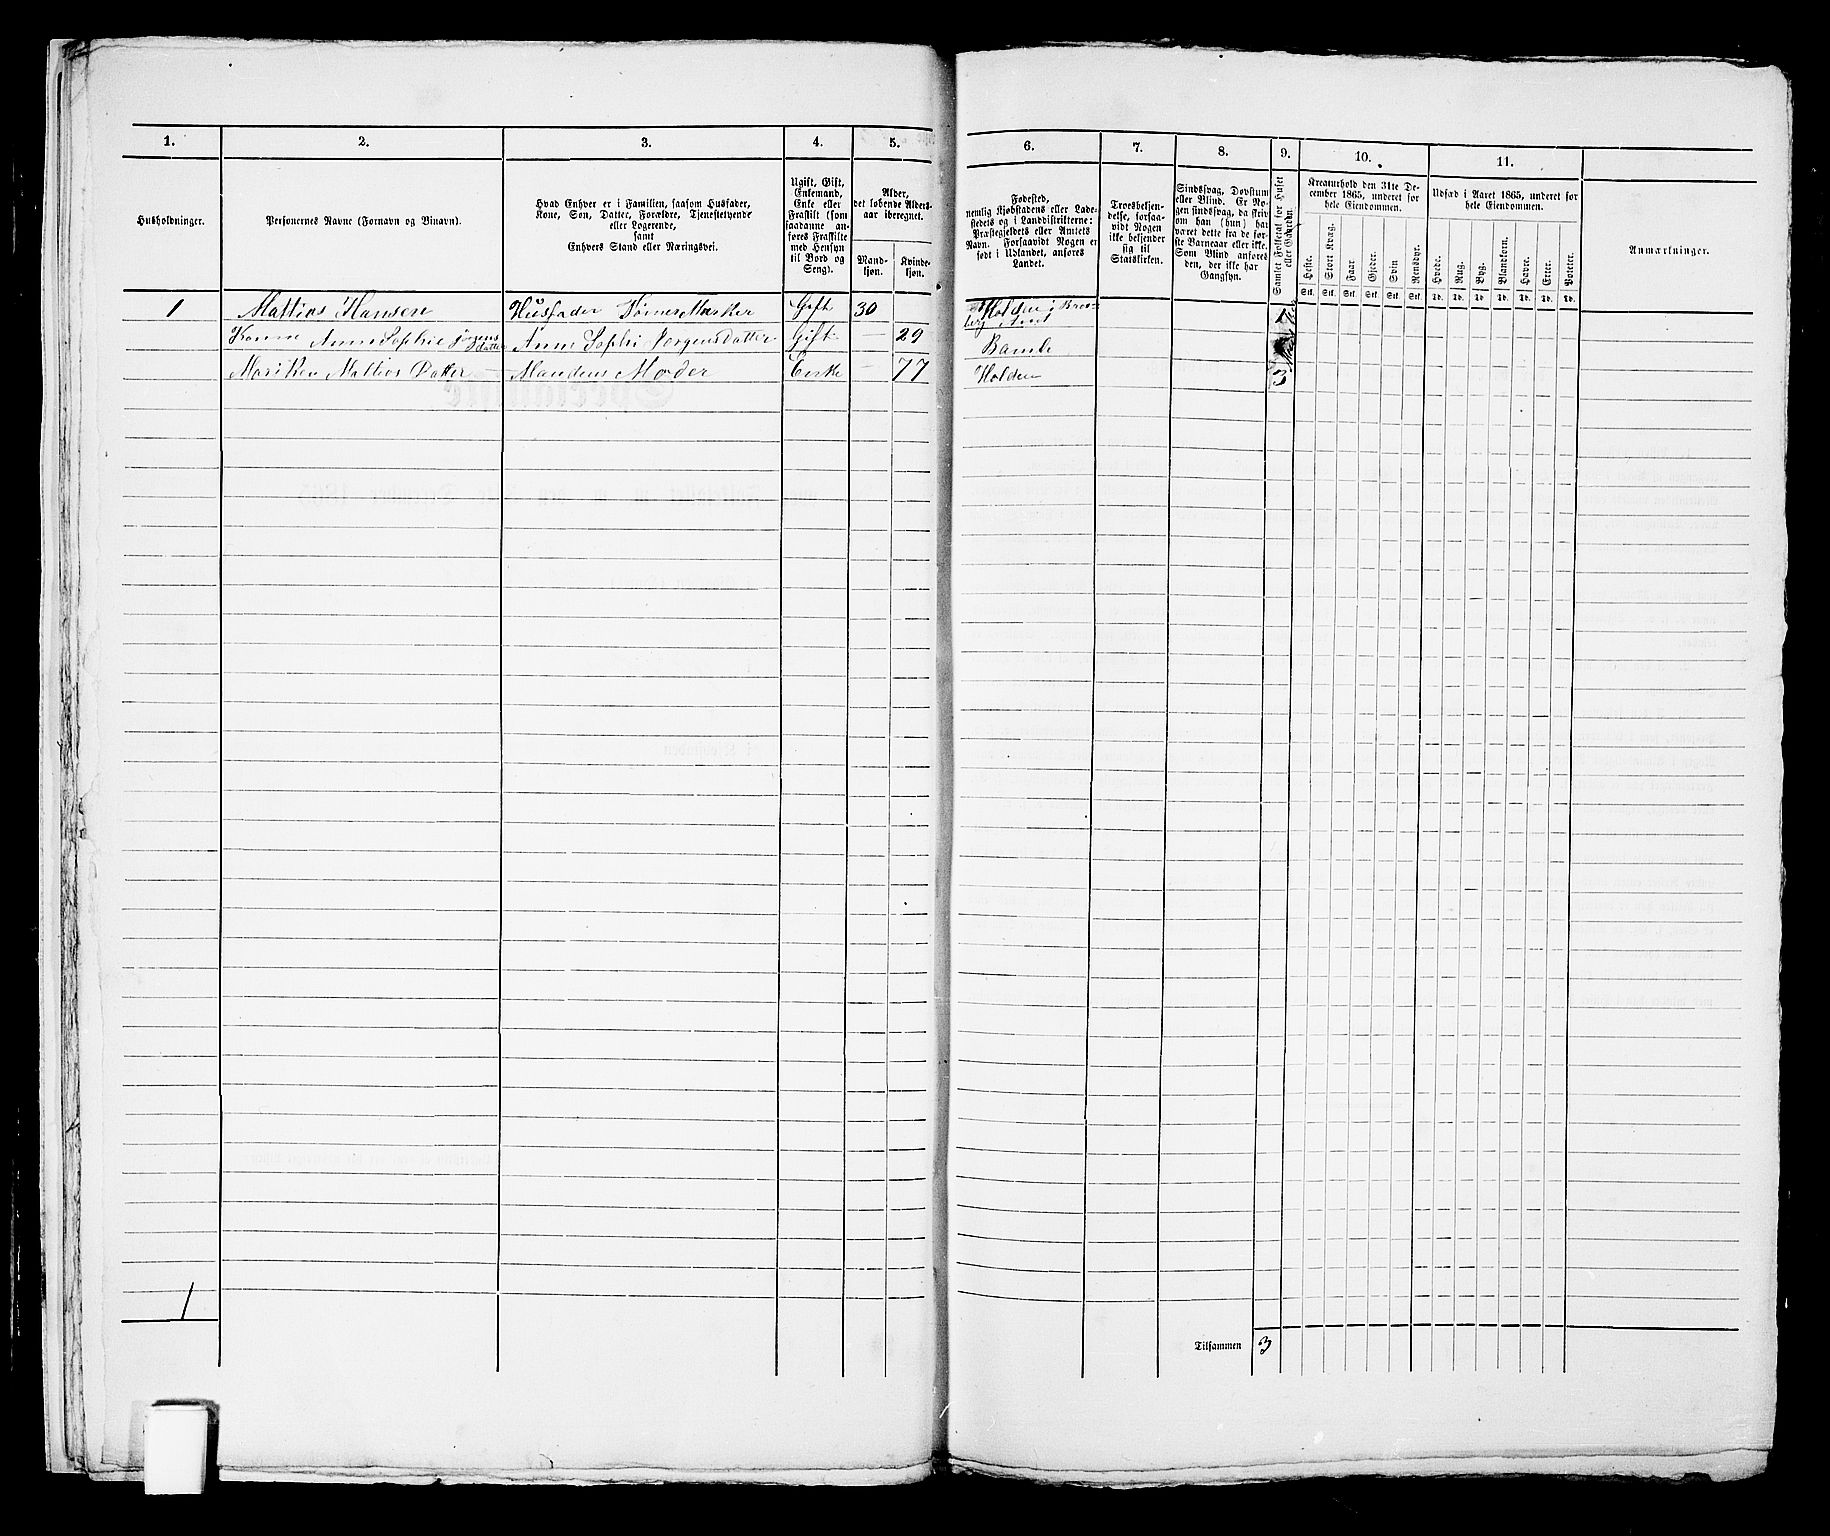 1.
2.
3.
4.
5.
6.
7.
8.
9.
10.
11.
Husholdninger.
Personernes Navne (Fornavn og Binavn).
Hvad Enhver er i Familien, saasom Husfader,
Kone, Søn, Datter, Forældre, Tjenestetyende
eller Logerende,
samt
Enhvers Stand eller Næringsvei.
Ugift, Gift,
Enkemand,
Enke eller
Fraskilt (som
saadanne an-
føres Fraskilte
med Hensyn
til Bord og
Seng).
Alder,
det løbende Alders-
aar iberegnet.
Mand-
kjøn.
Kvinde-
kjøn.
Fødested,
nemlig Kjøbstadens eller Lade-
stedets og i Landdistrikterne:
Præstegjeldets eller Amtets
Navn. Forsaavidt Nogen er
født i Udlandet, anføres
Landet.
Troesbekjen-
delse, forsaa-
vidt Nogen
ikke bekjender
sig til
Statskirken.
Sindssvag, Døvstum
eller Blind. Er No-
gen sindssvag, da skriv
om han (hun) har
været dette fra de før-
ste Barneaar eller ikke.
Som Blind anføres
den, der ikke har
Gangsyn.
Samlet Folketal for Huset
eller Gaarden.
Kreaturhold den 31te De-
cember 1865, underet for
hele Eiendommen.
Heste.
Stort Kvæg.
Faar
Gjeder.
Svin
Rensdyr.
Stk. Stk. Stk. Stk. Stk. Stk.
Udsæd i Aaret 1865, underet for
hele Eiendommen.
Hvede.
Rug.
Byg.
Blandkorn.
Havre.
Erter.
Poteter.
Td. Td. Td. Td. Td. Td. Td.
Anmærkninger.
1 Mattias Hansen Husfader Gift 30 Holden i Brats-
berg Amt 1
Konne Anne Sophie Jørgens
datter Anne Sophi Jørgensdatter Gift 29 Bamle
Mariken Mattias Datter Mandens Moder Enke 77 Holden 3
1
Tilsammen 3